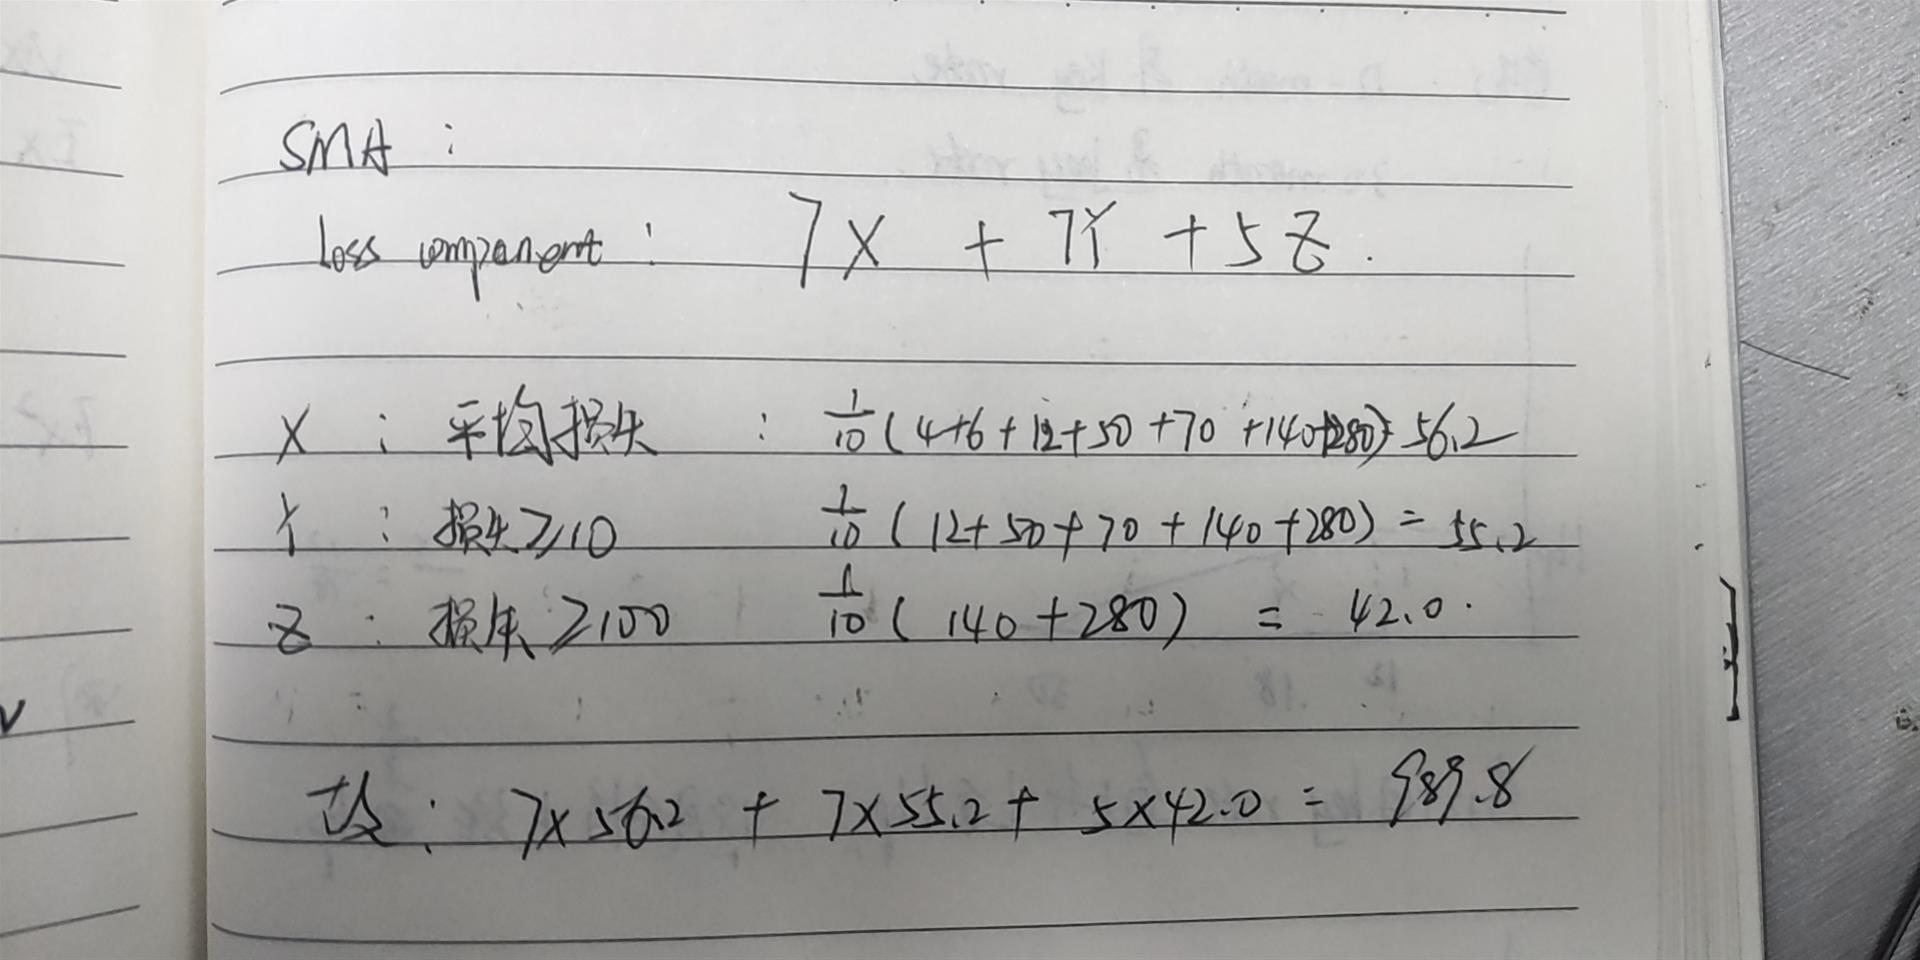 SMA :
Loss component : 7X + 7Y + 5Z .
X : 平均损失 : 1/10 (4+6+12+50+70+140+280) = 56.2
Y : 损失≥10 1/10 (12+50+70+140+280) = 55.2
Z : 损失≥100 1/10 (140+280) = 42.0 .
: 7×56.2 + 7×55.2 + 5×42.0 = 989.8